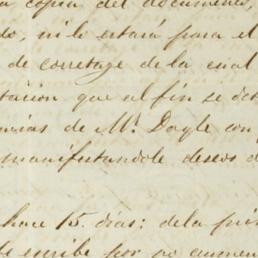 copia del documento,
do, ni lo estará para el
de corretage de la cual
tacion que al fin se
ncias de Mr. Doyle con
manifestandole deseos d
hace 15. dias: de la
escribe por no aumen